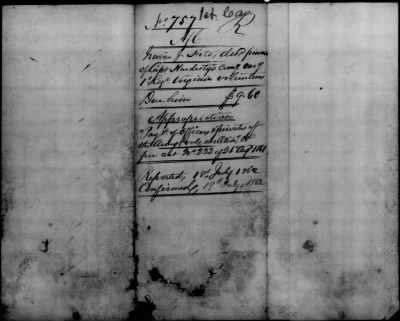 No 757 1st Cav
A/c
Irwin J. Hite, dec'd private
of Capt Hardesty's Comp'y
1st Reg't Virginia volunteers
Due him $9.60
Appropriation
Pay of Officers & privates of
per act No 232 of 21 Aug 1861
Reported, 18th July 1862
Confirmed, 19th July, 1862